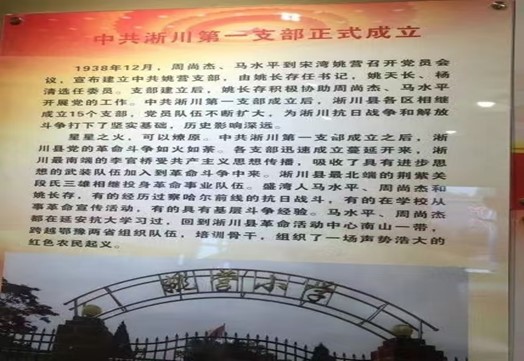 中共淅川第一支部正式成立
1938年12月，周尚杰、马水平到宋湾姚营召开党员会
议，宣布建立中共姚营支部，由姚长存任书记，姚天长、杨
清选任委员。支部建立后，姚长存积极协助周尚杰、马水平
开展党的工作。中共淅川第一支部成立后，淅川县各区相继
成立15个支部，党员队伍不断扩大，为淅川抗日战争和解放
斗争打下了坚实基础，历史影响深远。
星星之火，可以燎原。中共淅川第一支部成立之后，淅
川县党的革命斗争如火如荼。各支部迅速成立蔓延开来，淅
川最南端的李官桥受共产主义思想传播，吸收了具有进步思
想的武装队伍加入到革命斗争中来。淅川县最北端的荆紫关
段氏三雄相继投身革命事业队伍。盛湾人马水平、周尚杰和
姚长存，有的经历过察哈尔前线的抗日战斗，有的在学校从
事革命宣传活动，有的具有基层斗争经验。马水平、周尚杰
都在延安抗大学习过，回到淅川县革命活动中心南山一带，
跨越鄂豫两省组织队伍，培训骨干，组织了一场声势浩大的
红色农民起义。
姚营小学